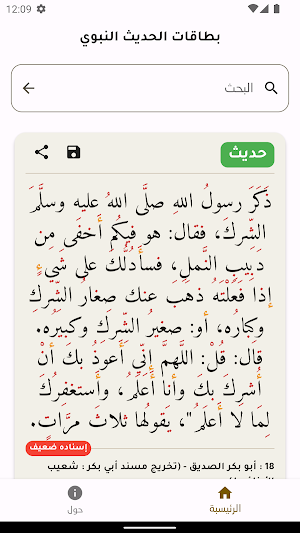 12:09
بطاقات الحديث النبوي
البحث
حديث
ذَكَرَ رسولُ اللهِ صلَّى اللهُ عليه وسلَّمَ
الشِّركَ، فقال: هو فيكُم أَخفى مِن
دَبِيبِ النَّملِ، فسأَدُلُّكَ على شَيءٍ
إذا فَعَلْتَهُ ذَهَبَ عنك صغارُ الشِّركِ
وكِبَارُه، أو: صغيرُ الشِّركِ وكبيرُه.
قال: قُلْ: اللَّهمَّ إنِّي أَعوذُ بك أنْ
أُشرِكَ بكَ وأنا أَعلَمُ، وأَستغفِرُكَ
لِمَا لَا أَعلَمُ"، يَقولُها ثلاثَ مرَّاتٍ.
إسناده ضعيف
18 : أبو بكر الصديق - (تخريج مسند أبي بكر : شعيب
الرئيسية
حول